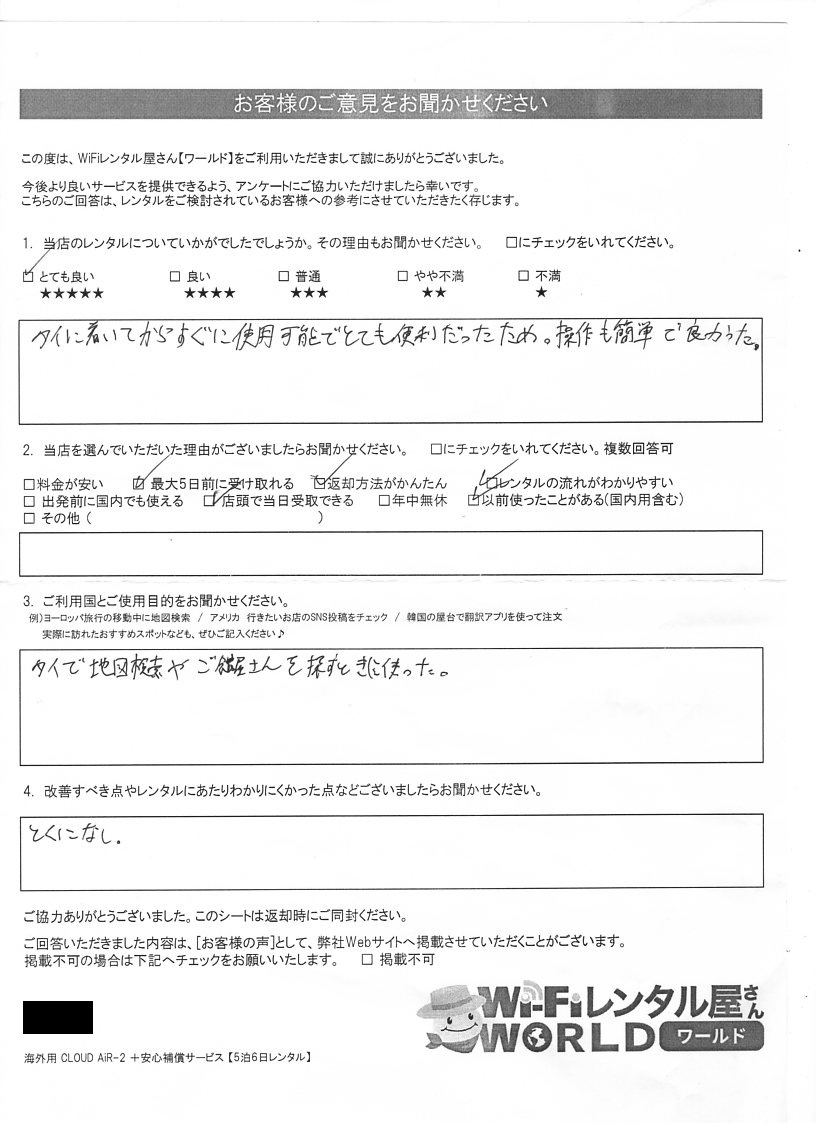 お客様のご意見をお聞かせください
この度は、WiFiレンタル屋さん【ワールド】をご利用いただきまして誠にありがとうございました。
今後より良いサービスを提供できるよう、アンケートにご協力いただけましたら幸いです。
こちらのご回答は、レンタルをご検討されているお客様への参考にさせていただきたく存じます。
1. 当店のレンタルについていかがでしたでしょうか。その理由もお聞かせください。 □にチェックをいれてください。
☑ とても良い □ 良い □ 普通 □ やや不満 □ 不満
★★★★★ ★★★★ ★★★ ★★ ★
タイに着いてからすぐに使用可能でとても便利だったため。操作も簡単で良かった。
2. 当店を選んでいただいた理由がございましたらお聞かせください。 □にチェックをいれてください。複数回答可
□料金が安い ☑ 最大5日前に受け取れる ☑返却方法がかんたん ☑レンタルの流れがわかりやすい
□ 出発前に国内でも使える ☑ 店頭で当日受取できる □年中無休 □以前使ったことがある(国内用含む)
□ その他 ( )
3. ご利用国とご使用目的をお聞かせください。
例)ヨーロッパ旅行の移動中に地図検索 / アメリカ 行きたいお店のSNS投稿をチェック / 韓国の屋台で翻訳アプリを使って注文
実際に訪れたおすすめスポットなども、ぜひご記入ください♪
タイで地図検索やご飯屋さんを探すときに使った。
4. 改善すべき点やレンタルにあたりわかりにくかった点などございましたらお聞かせください。
とくになし。
ご協力ありがとうございました。このシートは返却時にご同封ください。
ご回答いただきました内容は、[お客様の声]として、弊社Webサイトへ掲載させていただくことがございます。
掲載不可の場合は下記へチェックをお願いいたします。 □ 掲載不可
Wi-Fiレンタル屋さん
WORLD ワールド
海外用 CLOUD AiR-2 +安心補償サービス 【5泊6日レンタル】